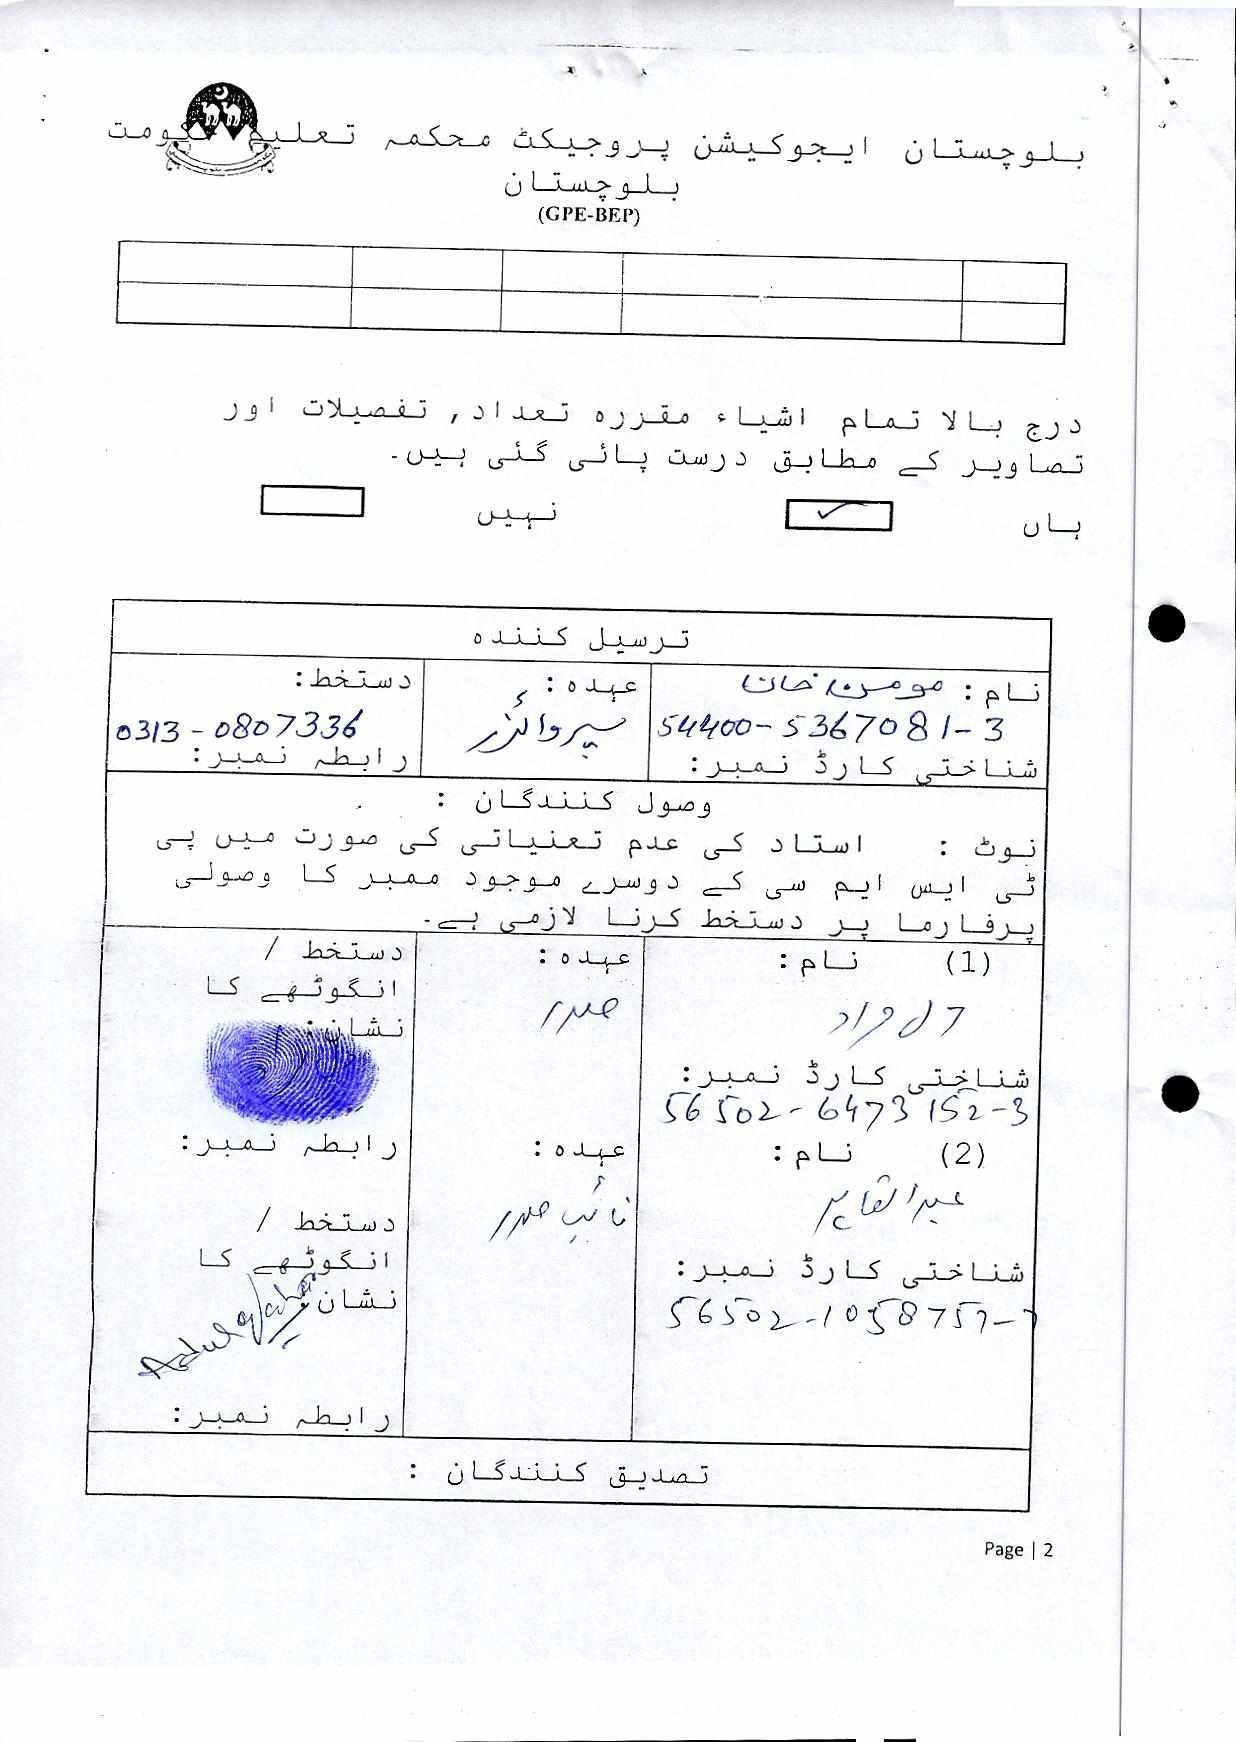 بلوچستان ایجوکیشن پروجیکٹ محکمہ تعلیم حکومت
بلوچستان
(GPE-BEP)
درج بالا تمام اشیاء مقررہ تعداد, تفصیلات اور
تصاویر کے مطابق درست پائی گئی ہیں۔
ہاں ✓ نہیں
ترسیل کنندہ
نام: مومن خان عہدہ: دستخط:
54400-5367081-3 سپروائزر 0313-0807336
شناختی کارڈ نمبر: رابطہ نمبر:
وصول کنندگان :
نوٹ : استاد کی عدم تعنیاتی کی صورت میں پی
ٹی ایس ایم سی کے دوسرے موجود ممبر کا وصولی
پرفارما پر دستخط کرنا لازمی ہے۔
(1) نام: عہدہ: دستخط /
انگوٹھے کا
نشان:
صدر
شناختی کارڈ نمبر:
56502-6473152-3
رابطہ نمبر:
(2) نام: عہدہ:
عبدالقادر نائب صدر
دستخط /
انگوٹھے کا
نشان:
شناختی کارڈ نمبر:
رابطہ نمبر:
تصدیق کنندگان :
Page | 2